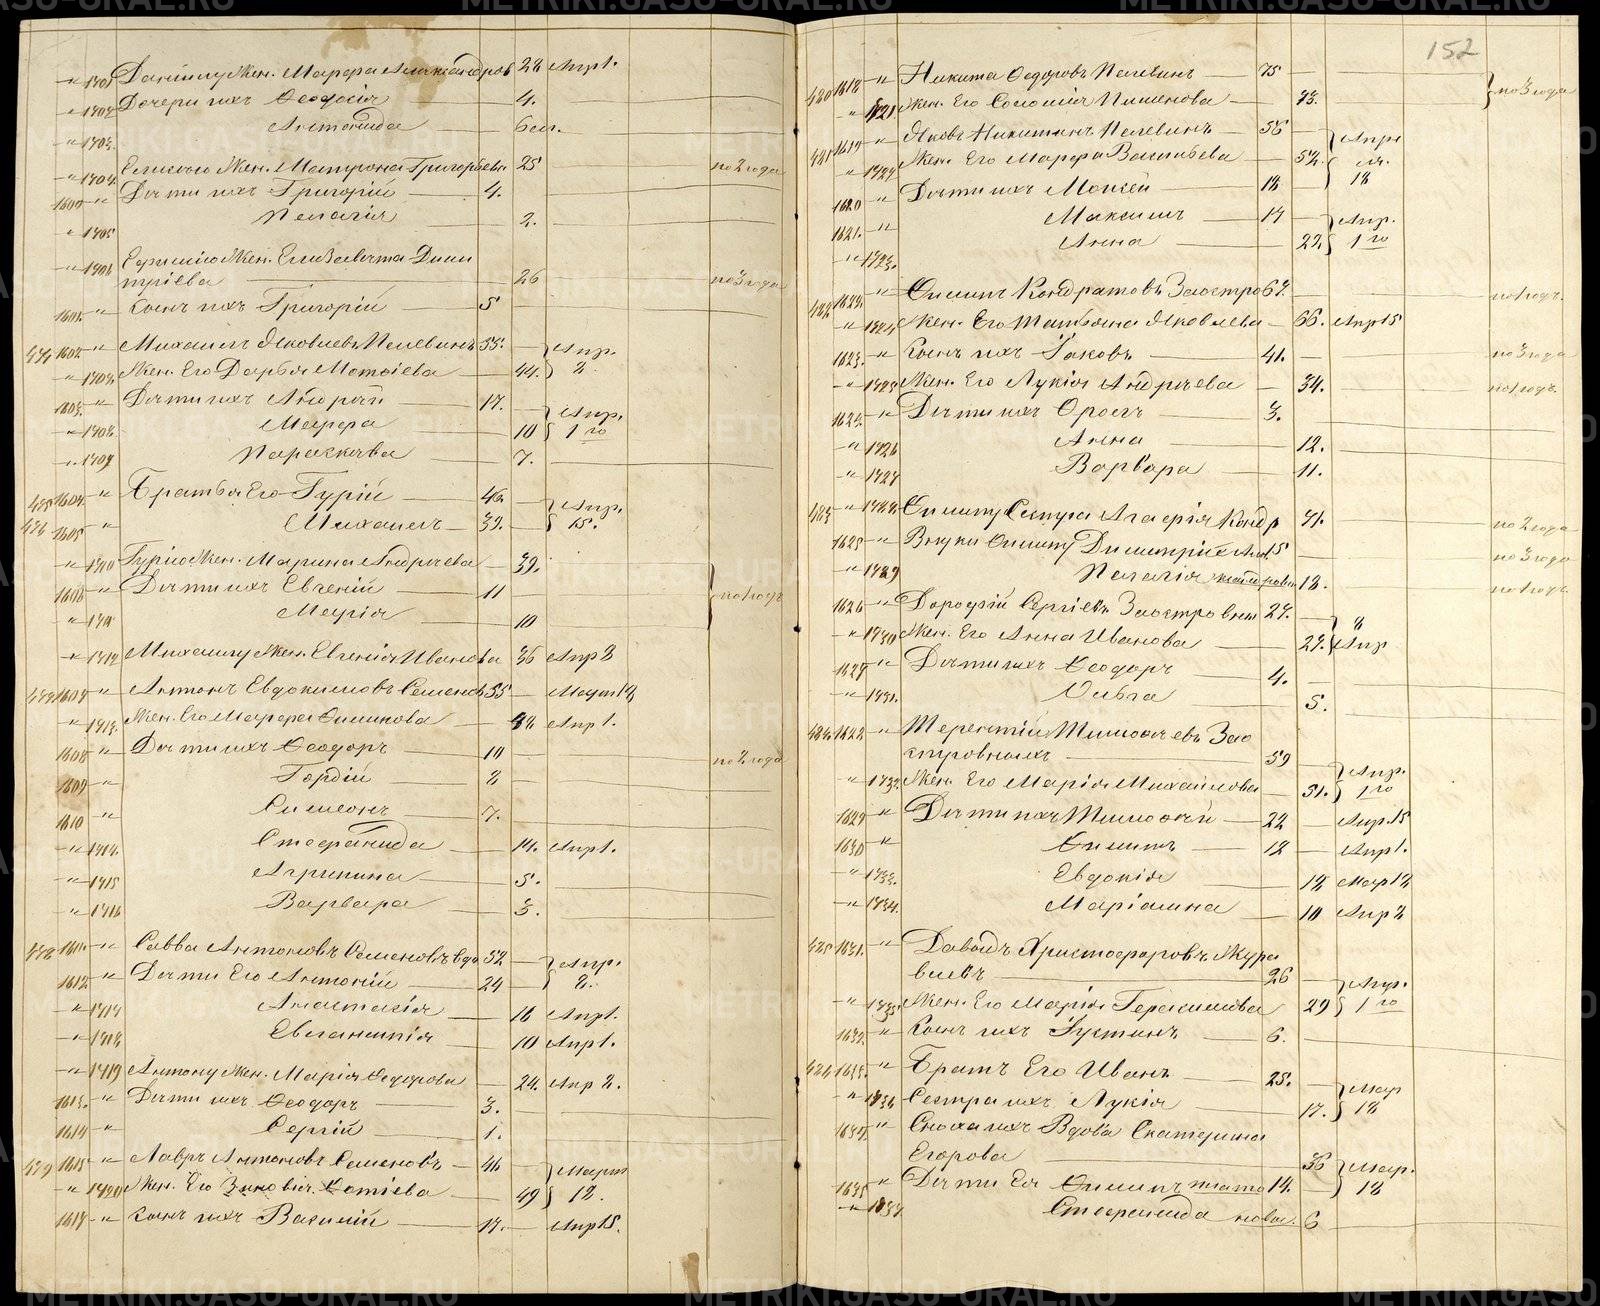 " 1701 Даниилу Жен. Марфа Александров 28 Апр 1.
" 1702 Дочери ихъ Ѳеодосія 4.
" 1703. Антонида 6 мл.
" 1704. Жен. Матрона Григорьева 25 по 2 года
1600 " Дѣти ихъ Григорій 4.
" 1705 Пелагія 2.
" 1706 Ефимію Жен. Елизавета Дими
тріева 26 по 3 года
1601. " Сынъ ихъ Григорій 5
1602. " Михаилъ Яковлевъ Пелевинъ 55. Апр.
" 1707. Жен. Его Дарья Матѳіева 44. 2.
1603. " Дѣти ихъ Андрей 17. Апр.
" 1708 Марфа 10 1го
" 1709 Параскева 7.
1604. " Братья Его Гурій 46. Апр.
1605 " Михаилъ 39. 15.
" 1710 Гурію Жен. Марина Андреева 39.
1606 " Дѣти ихъ Евгеній 11 по 1 году
" 1711 Марія 10
" 1712 Михаилу Жен. Евгенія Иванова 36 Апр 2
1607 " Антонъ Евдокимовъ Семеновъ 55 Март 12
" 1713. Жен. Его Марфа Филипова Апр 1.
1608 " Дѣти ихъ Ѳеодоръ 10
1609 " Гордій 8 по 2 года
1610 " Симеонъ 7.
" 1714. Стефанида 14. Апр 1.
" 1715 Агрипина 5.
" 1716 Варвара 3.
1611. " Савва Антоновъ Семеновъ вдо 52 Апр.
1612. " Дѣти Его Антоній 24 2.
" 1717 Анастасія 16 Апр 1.
" 1718 Евлампія 10 Апр 1.
" 1719 Антону Жен. Марія Ѳедорова 24. Апр 2.
1613. " Дѣти ихъ Ѳеодоръ 3.
1614 " Сергій 1.
1615 " Лавръ Антоновъ Семеновъ 46 Март
" 1720 Жен. Его Зиновія Ѳотіева 49 12.
" Сынъ ихъ Василій 17. Апр 15.
152
1618 " Никита Ѳедоровъ Пелевинъ 75 по 3 года
" 1721. Жен. Его Соломія Пименова 73.
1619 " Яковъ Никитинъ Пелевинъ 56 Апр
" Жен. Его Марфа Васильева 52.
1620 " Дѣти ихъ Моисей 18 18
1621. " Максимъ 17 Апр.
" 1723. Анна 22. 1го
1622. " Филипъ Кондратовъ Заостров 67. по 1 годъ.
" 1724 Жен. Его Татьяна Яковлева 66. Апр 15
1623. " Сынъ ихъ Іаковъ 41. по 3 года
" 1725 Жен. Его Лукія Андреева 34. по 1 годъ.
1624. " Дѣти ихъ 3.
" 1726 Анна 12.
" 1727 Варвара 11.
" 1728. Филипу Сестра Агафія Кондр 71. по 2 года
1625 " Внуки Филипу Димитрій 15 по 3 года
" 1729 Пелагія 18. по 1 годъ.
1626 " Дорофій Сергіевъ Заостровны 27. "
" 1730 Жен. Его Анна Иванова 27. Апр
1627 " Дѣти ихъ Ѳеодоръ 4.
" 1731. Ольга 5.
" Терентій Тимоѳеевъ Зао
стровныхъ 59 Апр.
" 1732. Жен. Его Марія Михайлова 51. 1го
1629 " Дѣти ихъ Тимоѳей 22 Апр. 15
1630 " Филипъ 12 Апр 1.
" 1733. Евдокія 12 Мар 12
" 1734. Маріамна 10 Апр 2
1631. " Давыдъ Христофоровъ Жура
влевъ 26 Апр.
" 1735. Жен. Его Марія Герасимова 29 1го
1632. " Сынъ ихъ Іустинъ 6.
1633. " Братъ Его Иванъ 25. Мар
" 1736 Сестра ихъ Лукія 17. 18
" Сноха ихъ Вдова Екатерина
Егорова 36 Мар.
1635 " Дѣти Ея Филипъ 14. 18
" Стефанида 6